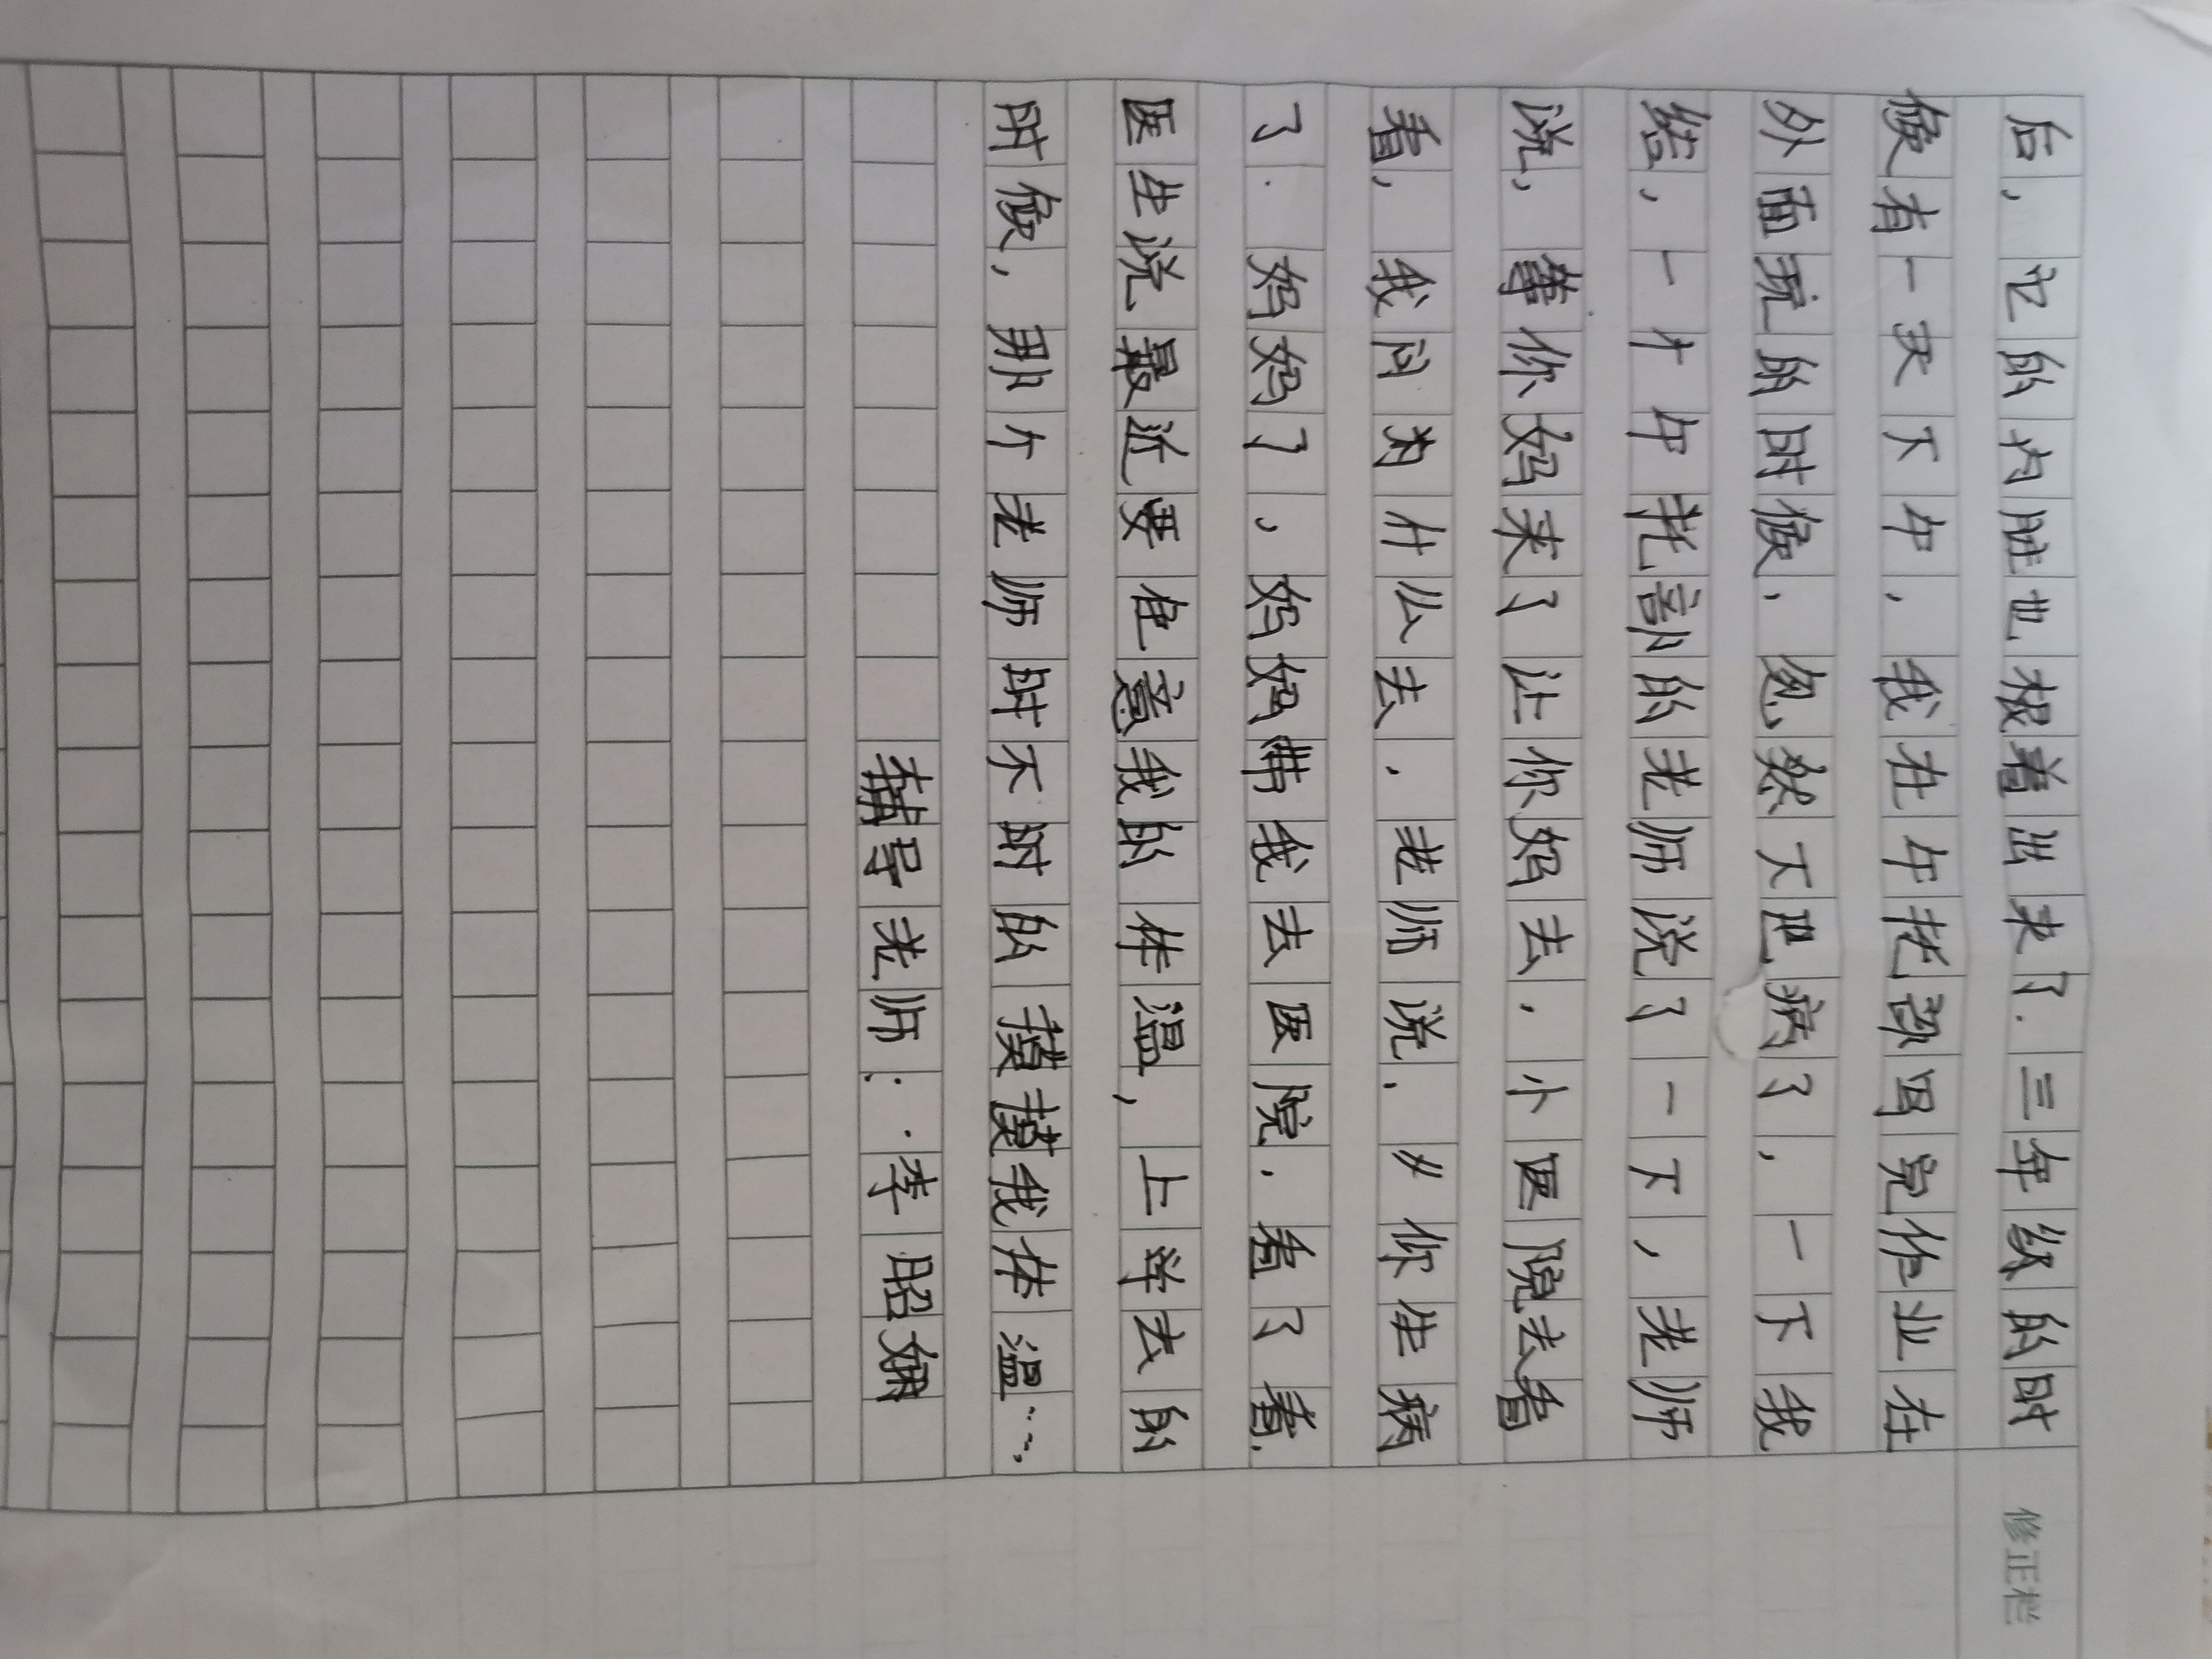 后，记的内脏也根着出来了．三年级的时
候有一天下午，我在午托部写完作业在
外面玩的时候，忽然下巴病了，一下我
结，一个午托部的老师说了一下，老师
说，等你妈来了让你妈去，小医院去看
看，我问为什么去．老师说．〃你生病
了．妈妈了，妈妈带我去医院．看了看．
医生说最近要在意我的体温，上学去的
时候，那个老师时不时的摸摸我体温……
辅导老师：李昭娜
修正栏